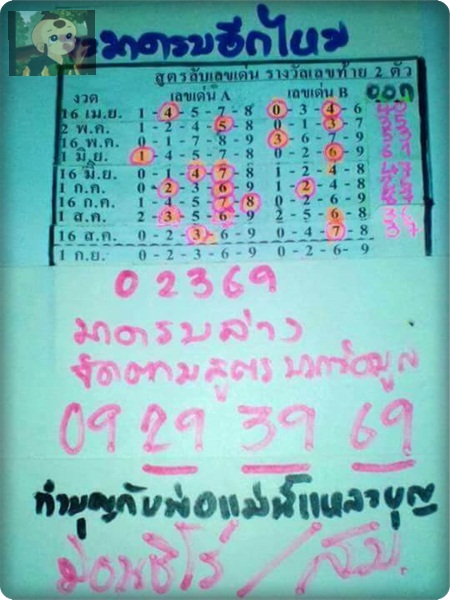 มาครบอีกไหม
สูตรลับเลขเด่น รางวัลเลขท้าย 2 ตัว
งวด เลขเด่น A เลขเด่น B ออก
16 เม.ย. 1-4-5-7-8 0-3-4-6 40
2 พ.ค. 1-4-5-7-8 0-1-3-7 53
16 พ.ค. 0-1-7-8-9 3-6-7-9
1 มิ.ย. 1-4-5-7-8 0-2-6-9 61
16 มิ.ย. 0-1-4-7-8 1-2-4-8 47
1 ก.ค. 0-2-3-6-9 1-2-4-8
16 ก.ค. 1-4-5-7-8 0-2-6-9
1 ส.ค. 2-3-5-6-9 2-5-6-8 36
16 ส.ค. 0-2-3-6-9 0-4-7-8 37
1 ก.ย. 0-2-3-6-9 0-2-6-9
02369
มาครบล่าง
จัดตามสูตร บวกข้อมูล
09 29 39 69
ทำบุญกับพ่อแม่นี้แหละบุญ